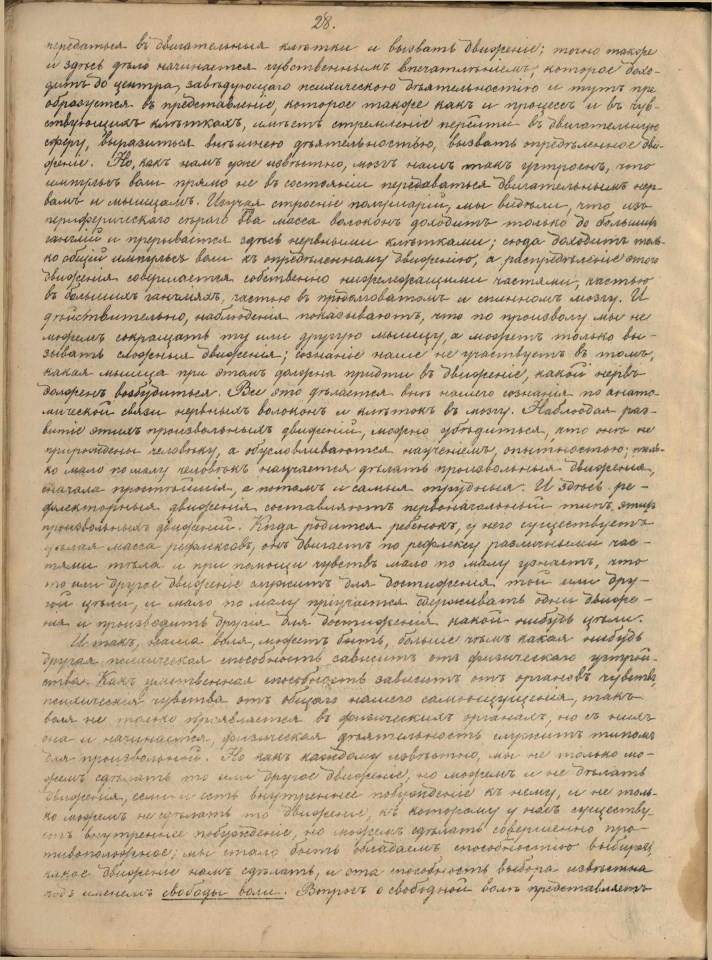 28.
передаться въ двигательныя клѣтки и вызвать движеніе; точно также
и здѣсь дѣло начинается чувственнымъ впечатлѣніемъ, которое дохо-
дитъ до центра, завѣдующаго психическою дѣятельностію и тутъ пре
образуется въ представленіе, которое также какъ и процессъ и въ чув-
ствующихъ клѣткахъ, имѣетъ стремленіе перейти въ двигательную
сферу, выразиться внѣшнею дѣятельностью, вызвать опредѣленное дви-
женіе. Но, какъ намъ уже извѣстно, мозгъ нашъ такъ устроенъ, что
импульсъ воли прямо не въ состояніи передаваться двигательнымъ нер-
вамъ и мышцамъ. Изучая строеніе полушарій, мы видѣли, что изъ
периферическаго сѣраго в-ва масса волоконъ доходитъ только до большихъ
ганглій и прерывается здѣсь нервными клѣтками; сюда доходитъ толь-
ко общій импульсъ воли къ опредѣленному движенію, а распредѣленіе этого
движенія совершается собственно нижележащими частями, частью
въ большихъ ганглiяхъ, частью въ продолговатомъ и спинномъ мозгу. И
дѣйствительно, наблюденія показываютъ, что по произволу мы не
можемъ сокращать ту или другую мышцу, а можемъ только вы-
зывать сложныя движенія; сознаніе наше не участвуетъ въ томъ,
какая мышца при этомъ должна придти въ движеніе, какой нервъ
долженъ возбудиться. Все это дѣлается внѣ нашего сознанія по анато-
мической связи нервныхъ волоконъ и клѣтокъ въ мозгу. Наблюдая раз-
витіе этихъ произвольныхъ движеній, можно убѣдиться, что онѣ не
прирождены человѣку, а обусловливаются наученіемъ, опытностью; толь-
ко мало по малу человѣкъ научается дѣлать произвольныя движенія,
сначала простѣйшія, а потомъ и самыя трудныя. И здѣсь ре-
флекторныя движенія составляютъ первоначальный типъ этихъ
произвольныхъ движеній. Когда родится ребенокъ, у него существуетъ
цѣлая масса рефлексовъ, онъ двигаетъ по рефлексу различными час-
тями тѣла и при помощи чувствъ мало по малу узнаетъ, что
то или другое движеніе служитъ для достиженія той или дру-
гой цѣли, и мало по малу пріучается сдерживать одни движе-
нія и производить другія для достиженія какой нибудь цѣли.
И такъ, наша воля, можетъ быть, больше чѣмъ какая нибудь
другая психическая способность зависитъ отъ физическаго устрой-
ства. Какъ умственная способность зависитъ отъ органовъ чувствъ,
психическія чувства отъ общаго нашего самоощущенія, такъ
воля не только проявляется въ физическихъ органахъ, но съ нихъ
она и начинается, физическая дѣятельность служитъ типомъ
для произвольнаго. Но какъ каждому извѣстно, мы не только мо-
жемъ сдѣлать то или другое движеніе, но можемъ и не дѣлать
движенія, если и есть внутреннее побужденіе къ нему, и не толь-
ко можемъ не сдѣлать то движеніе, къ которому у насъ существу-
етъ внутреннее побужденіе, но можемъ сдѣлать совершенно про-
тивоположное; мы стало быть обладаемъ способностію выбирать,
какое движеніе намъ сдѣлать, и эта способность выбора извѣстна
подъ именемъ свободы воли. Вопросъ о свободной волѣ представляетъ